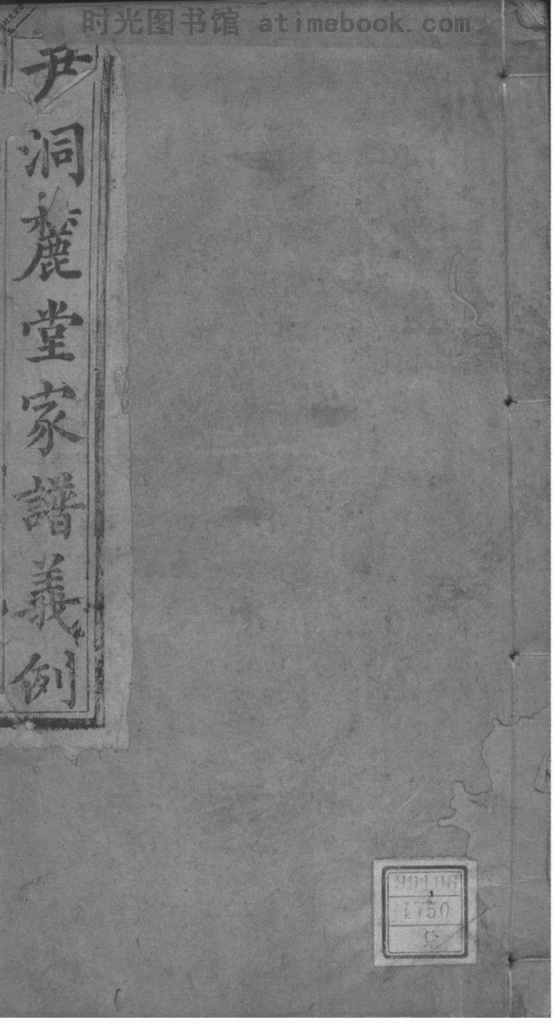 时光图书馆 atimebook.com
尹洞麓堂家譜義例
1750